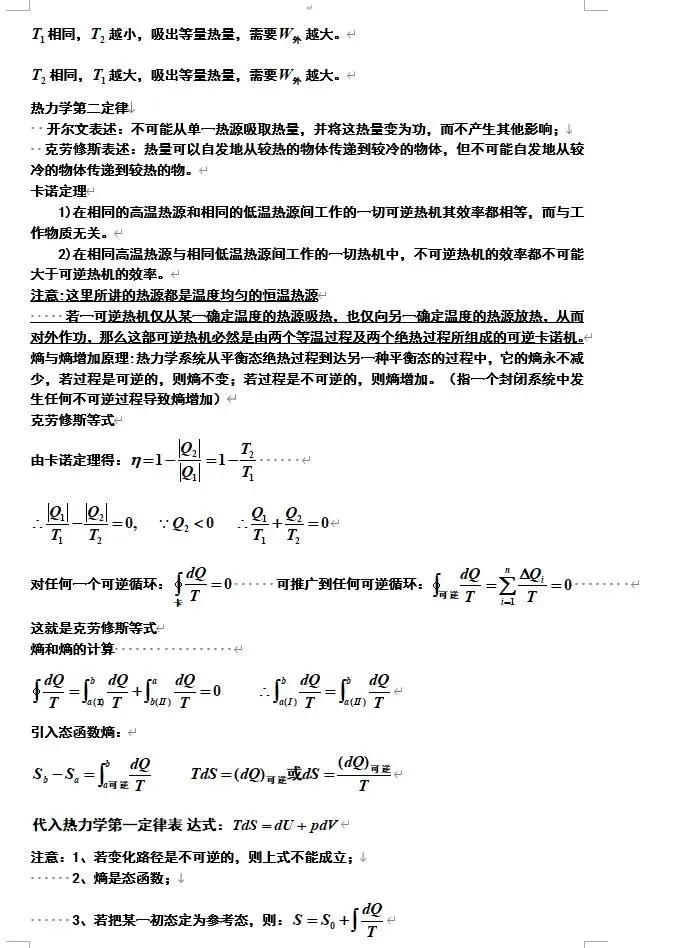 T₁相同，T₂越小，吸出等量热量，需要W外越大。
T₂相同，T₁越大，吸出等量热量，需要W外越大。
热力学第二定律
开尔文表述：不可能从单一热源吸取热量，并将这热量变为功，而不产生其他影响；
克劳修斯表述：热量可以自发地从较热的物体传递到较冷的物体，但不可能自发地从较
冷的物体传递到较热的物。
卡诺定理
1)在相同的高温热源和相同的低温热源间工作的一切可逆热机其效率都相等，而与工
作物质无关。
2)在相同高温热源与相同低温热源间工作的一切热机中，不可逆热机的效率都不可能
大于可逆热机的效率。
注意:这里所讲的热源都是温度均匀的恒温热源
若一可逆热机仅从某一确定温度的热源吸热，也仅向另一确定温度的热源放热，从而
对外作功，那么这部可逆热机必然是由两个等温过程及两个绝热过程所组成的可逆卡诺机。
熵与熵增加原理:热力学系统从平衡态绝热过程到达另一种平衡态的过程中，它的熵永不减
少，若过程是可逆的，则熵不变；若过程是不可逆的，则熵增加。（指一个封闭系统中发
生任何不可逆过程导致熵增加）
克劳修斯等式
由卡诺定理得：η=1−|Q₂|/|Q₁|=1−T₂/T₁
∴|Q₁|/T₁−|Q₂|/T₂=0, ∵Q₂<0 ∴Q₁/T₁+Q₂/T₂=0
对任何一个可逆循环：∮卡 dQ/T=0 可推广到任何可逆循环：∮可逆 dQ/T=∑ⁿᵢ₌₁ ΔQᵢ/T=0
这就是克劳修斯等式
熵和熵的计算
∮dQ/T=∫_{a(I)}^{b} dQ/T+∫_{b(II)}^{a} dQ/T=0 ∴∫_{a(I)}^{b} dQ/T=∫_{a(II)}^{b} dQ/T
引入态函数熵：
S_b−S_a=∫_{a可逆}^{b} dQ/T TdS=(dQ)可逆或dS=(dQ)可逆/T
代入热力学第一定律表 达式：TdS=dU+pdV
注意：1、若变化路径是不可逆的，则上式不能成立；
2、熵是态函数；
3、若把某一初态定为参考态，则：S=S₀+∫dQ/T